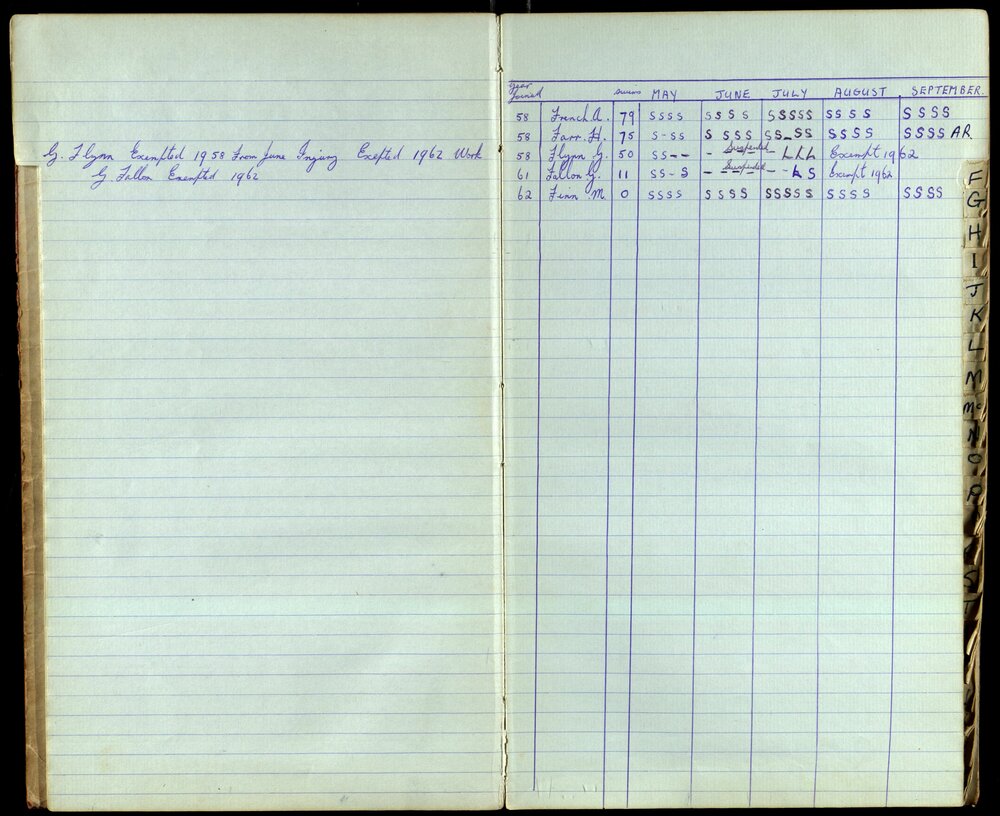 G. Flynn Exempted 1958 From June Injury Exepted 1962 Work
G. Fallon Exempted 1962
Year Joined Swims MAY JUNE JULY AUGUST SEPTEMBER.
58 French A. 79 SSSS SSSS SSSSS SSSS SSSS
58 Farr H. 75 S-SS SSSS SS-SS SSSS SSSS AR
58 Flynn G. 50 SS-- - Suspended - LLL Exempt 1962
61 Fallon G. 11 SS-S - Suspended --LS Exempt 1962
62 Finn M. 0 SSSS SSSS SSSSS SSSS SSSS
F
G
H
I
J
K
L
M
Mc
N
O
P
S
T